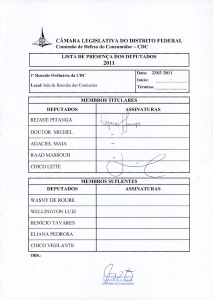 CÂMARA LEGISLATIVA DO DISTRITO FEDERAL
Comissão de Defesa do Consumidor – CDC
LISTA DE PRESENÇA DOS DEPUTADOS
2011
1ª Reunião Ordinária da CDC
Local: Sala de Reunião das Comissões
Data: 22/03/2011
Início:
Término:
MEMBROS TITULARES
DEPUTADOS ASSINATURAS
REJANE PITANGA
DOUTOR MICHEL
AGACIEL MAIA
RAAD MASSOUH
CHICO LEITE
MEMBROS SUPLENTES
DEPUTADOS ASSINATURAS
WASNY DE ROURE
WELLINGTON LUIZ
BENÍCIO TAVARES
ELIANA PEDROSA
CHICO VIGILANTE
OBS.: